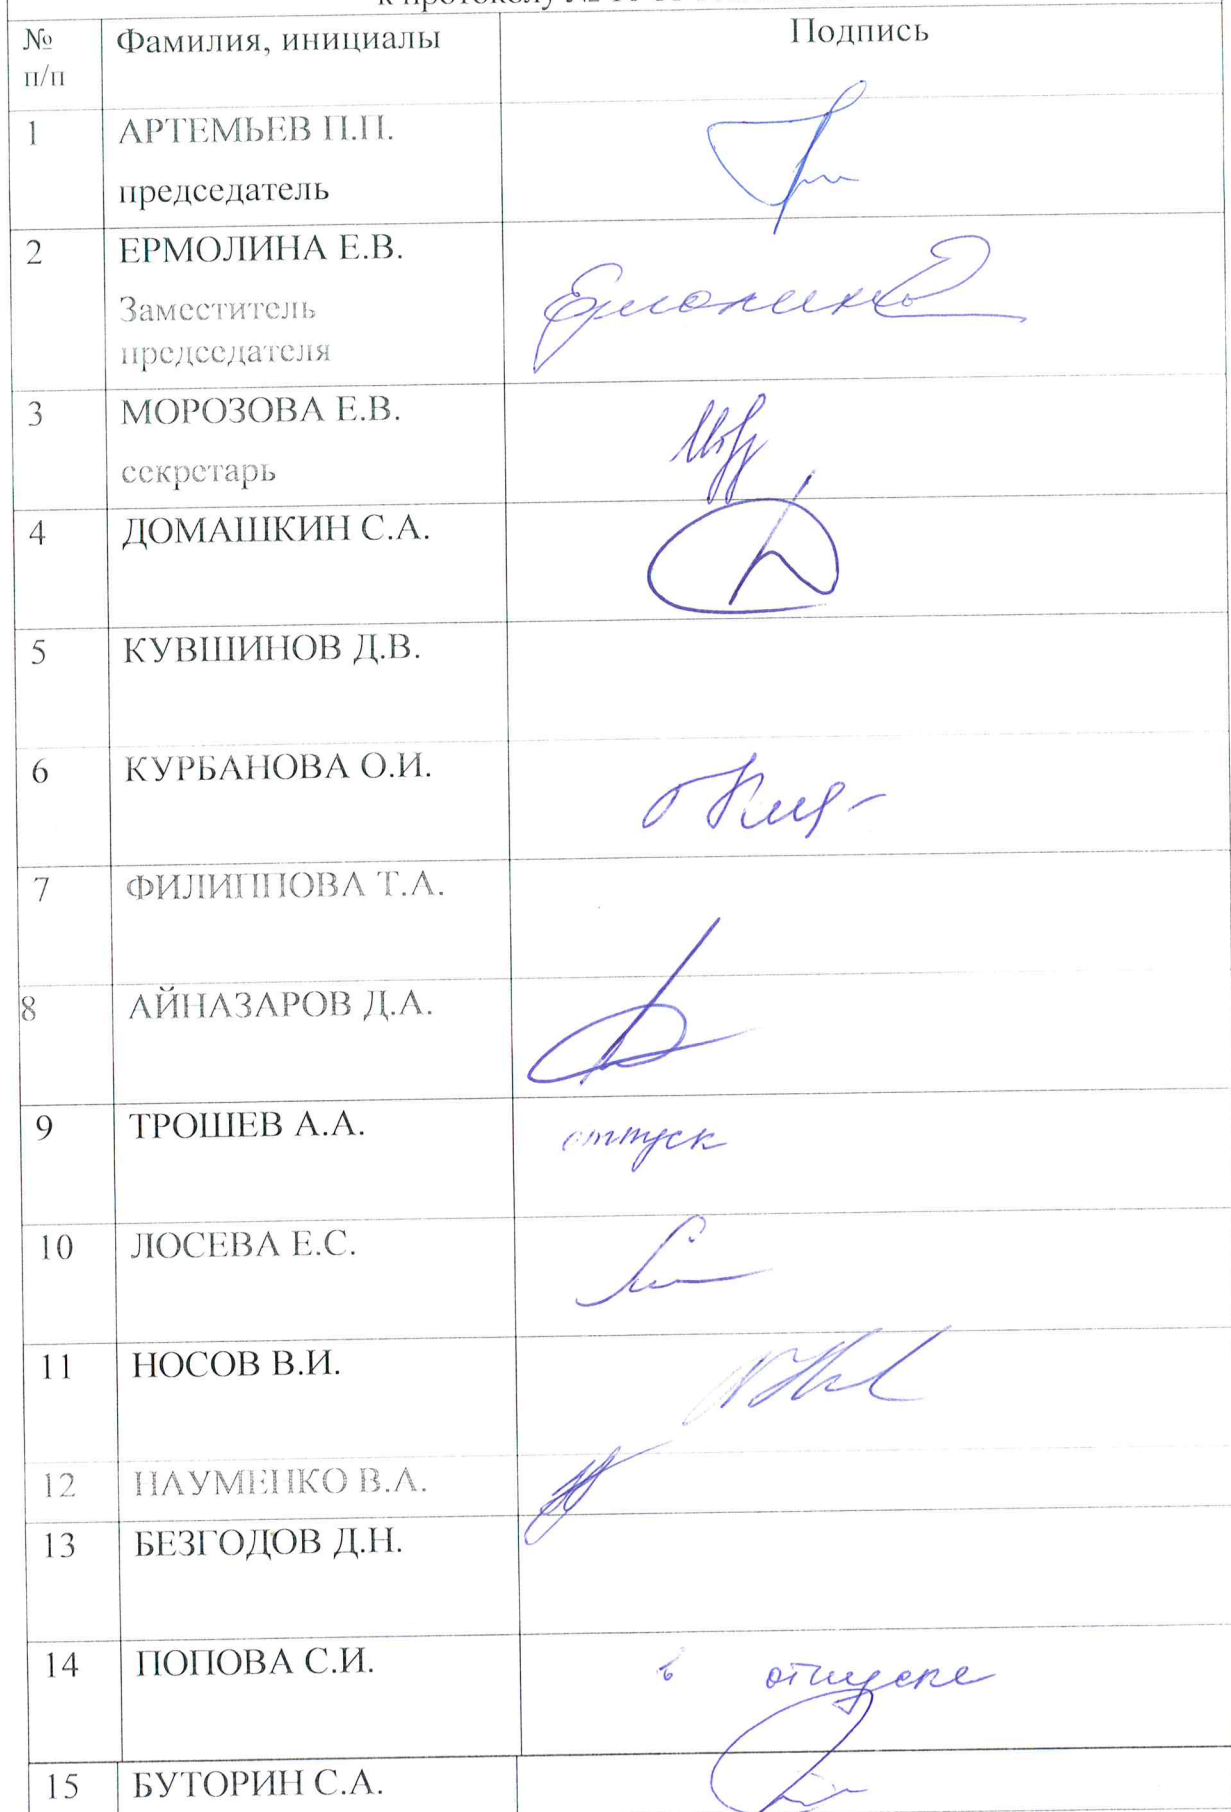 к протоколу №
№ п/п Фамилия, инициалы Подпись
1 АРТЕМЬЕВ П.П.
председатель
2 ЕРМОЛИНА Е.В.
Заместитель
председателя
Ермолина
3 МОРОЗОВА Е.В.
секретарь
4 ДОМАШКИН С.А.
5 КУВШИНОВ Д.В.
6 КУРБАНОВА О.И.
7 ФИЛИППОВА Т.А.
8 АЙНАЗАРОВ Д.А.
9 ТРОШЕВ А.А. отпуск
10 ЛОСЕВА Е.С.
11 НОСОВ В.И.
12 НАУМЕНКО В.А.
13 БЕЗГОДОВ Д.Н.
14 ПОПОВА С.И. в отпуске
15 БУТОРИН С.А.